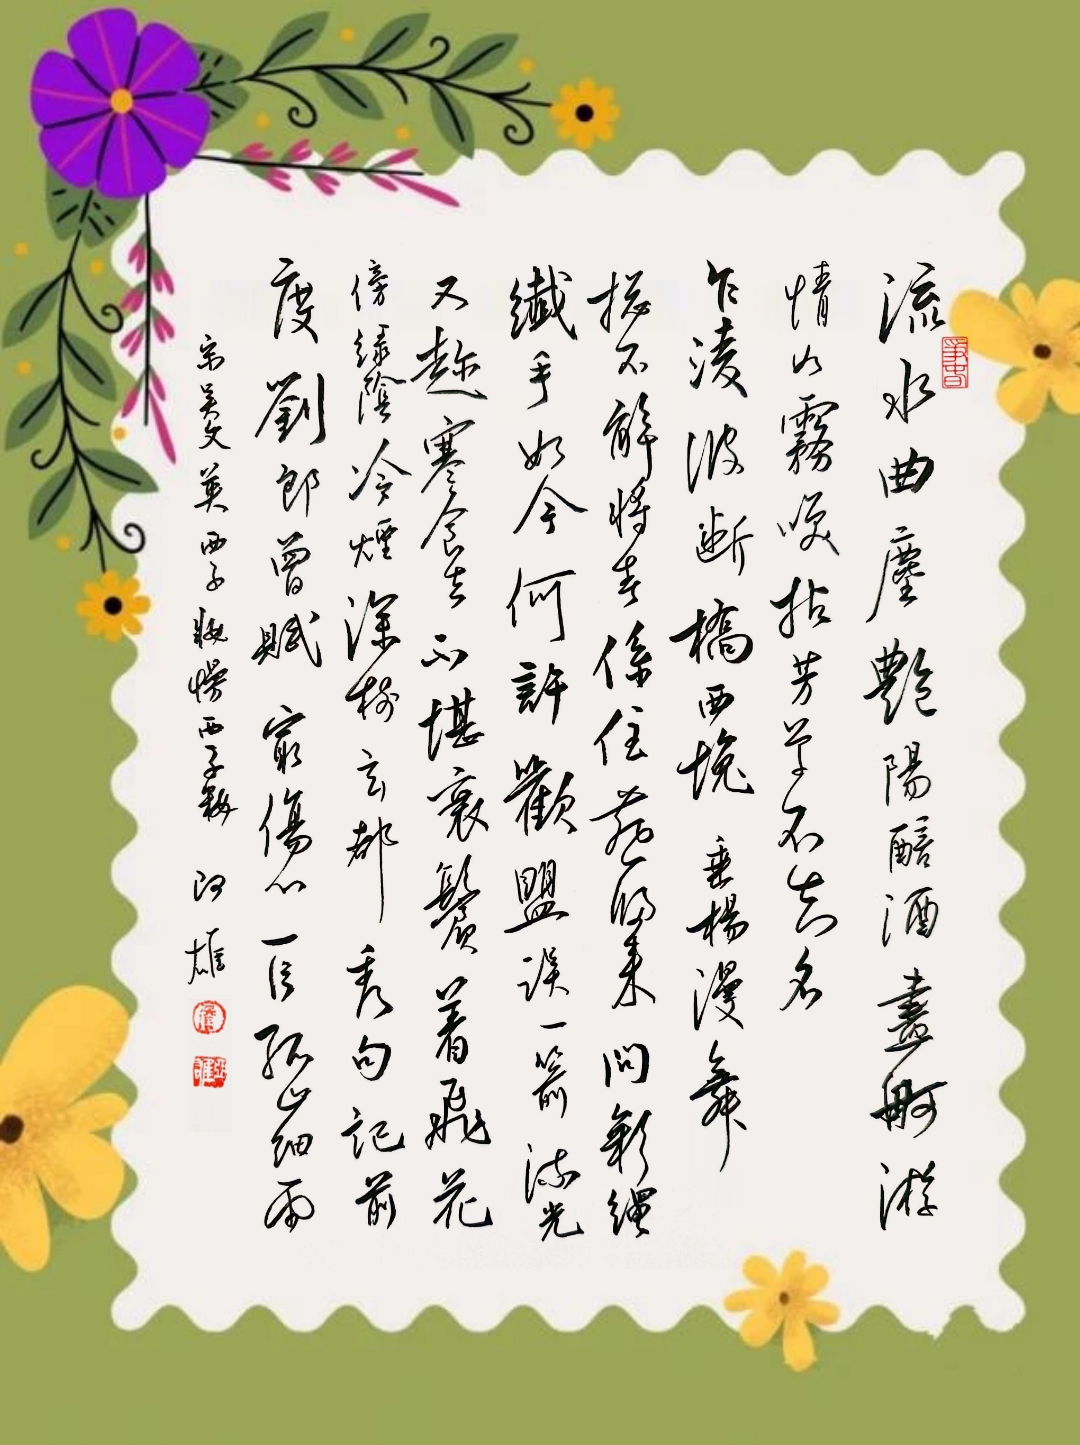 流水曲塵艷陽醅酒畫舸游
情如霧笑拈芳草不知名
乍淩波断橋西堍垂楊漫舞
揔不解將春係住燕归来問彩繩
纖手如今何許歡盟誤一箭流光
又趂寒食去不堪衰鬢着飛花
傍緑陰冷煙深樹玄都秀句記前
度劉郎曾賦最傷心一片孤山細雨
宋吴文英西子妝慢西子 阿雄